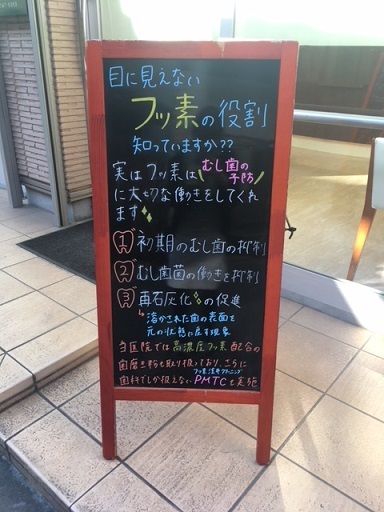 目に見えない
フッ素の役割
知っていますか??
実はフッ素は むし歯の予防
に大切な働きをしてくれ
ます
1 初期のむし歯の抑制
2 むし歯菌の働きを抑制
3 再石灰化の促進
↳溶かされた歯の表面を
元の状態に戻す現象
当医院では高濃度フッ素配合の
歯磨き粉も取り扱っており、さらに
歯科でしか扱えないPMTCも実施